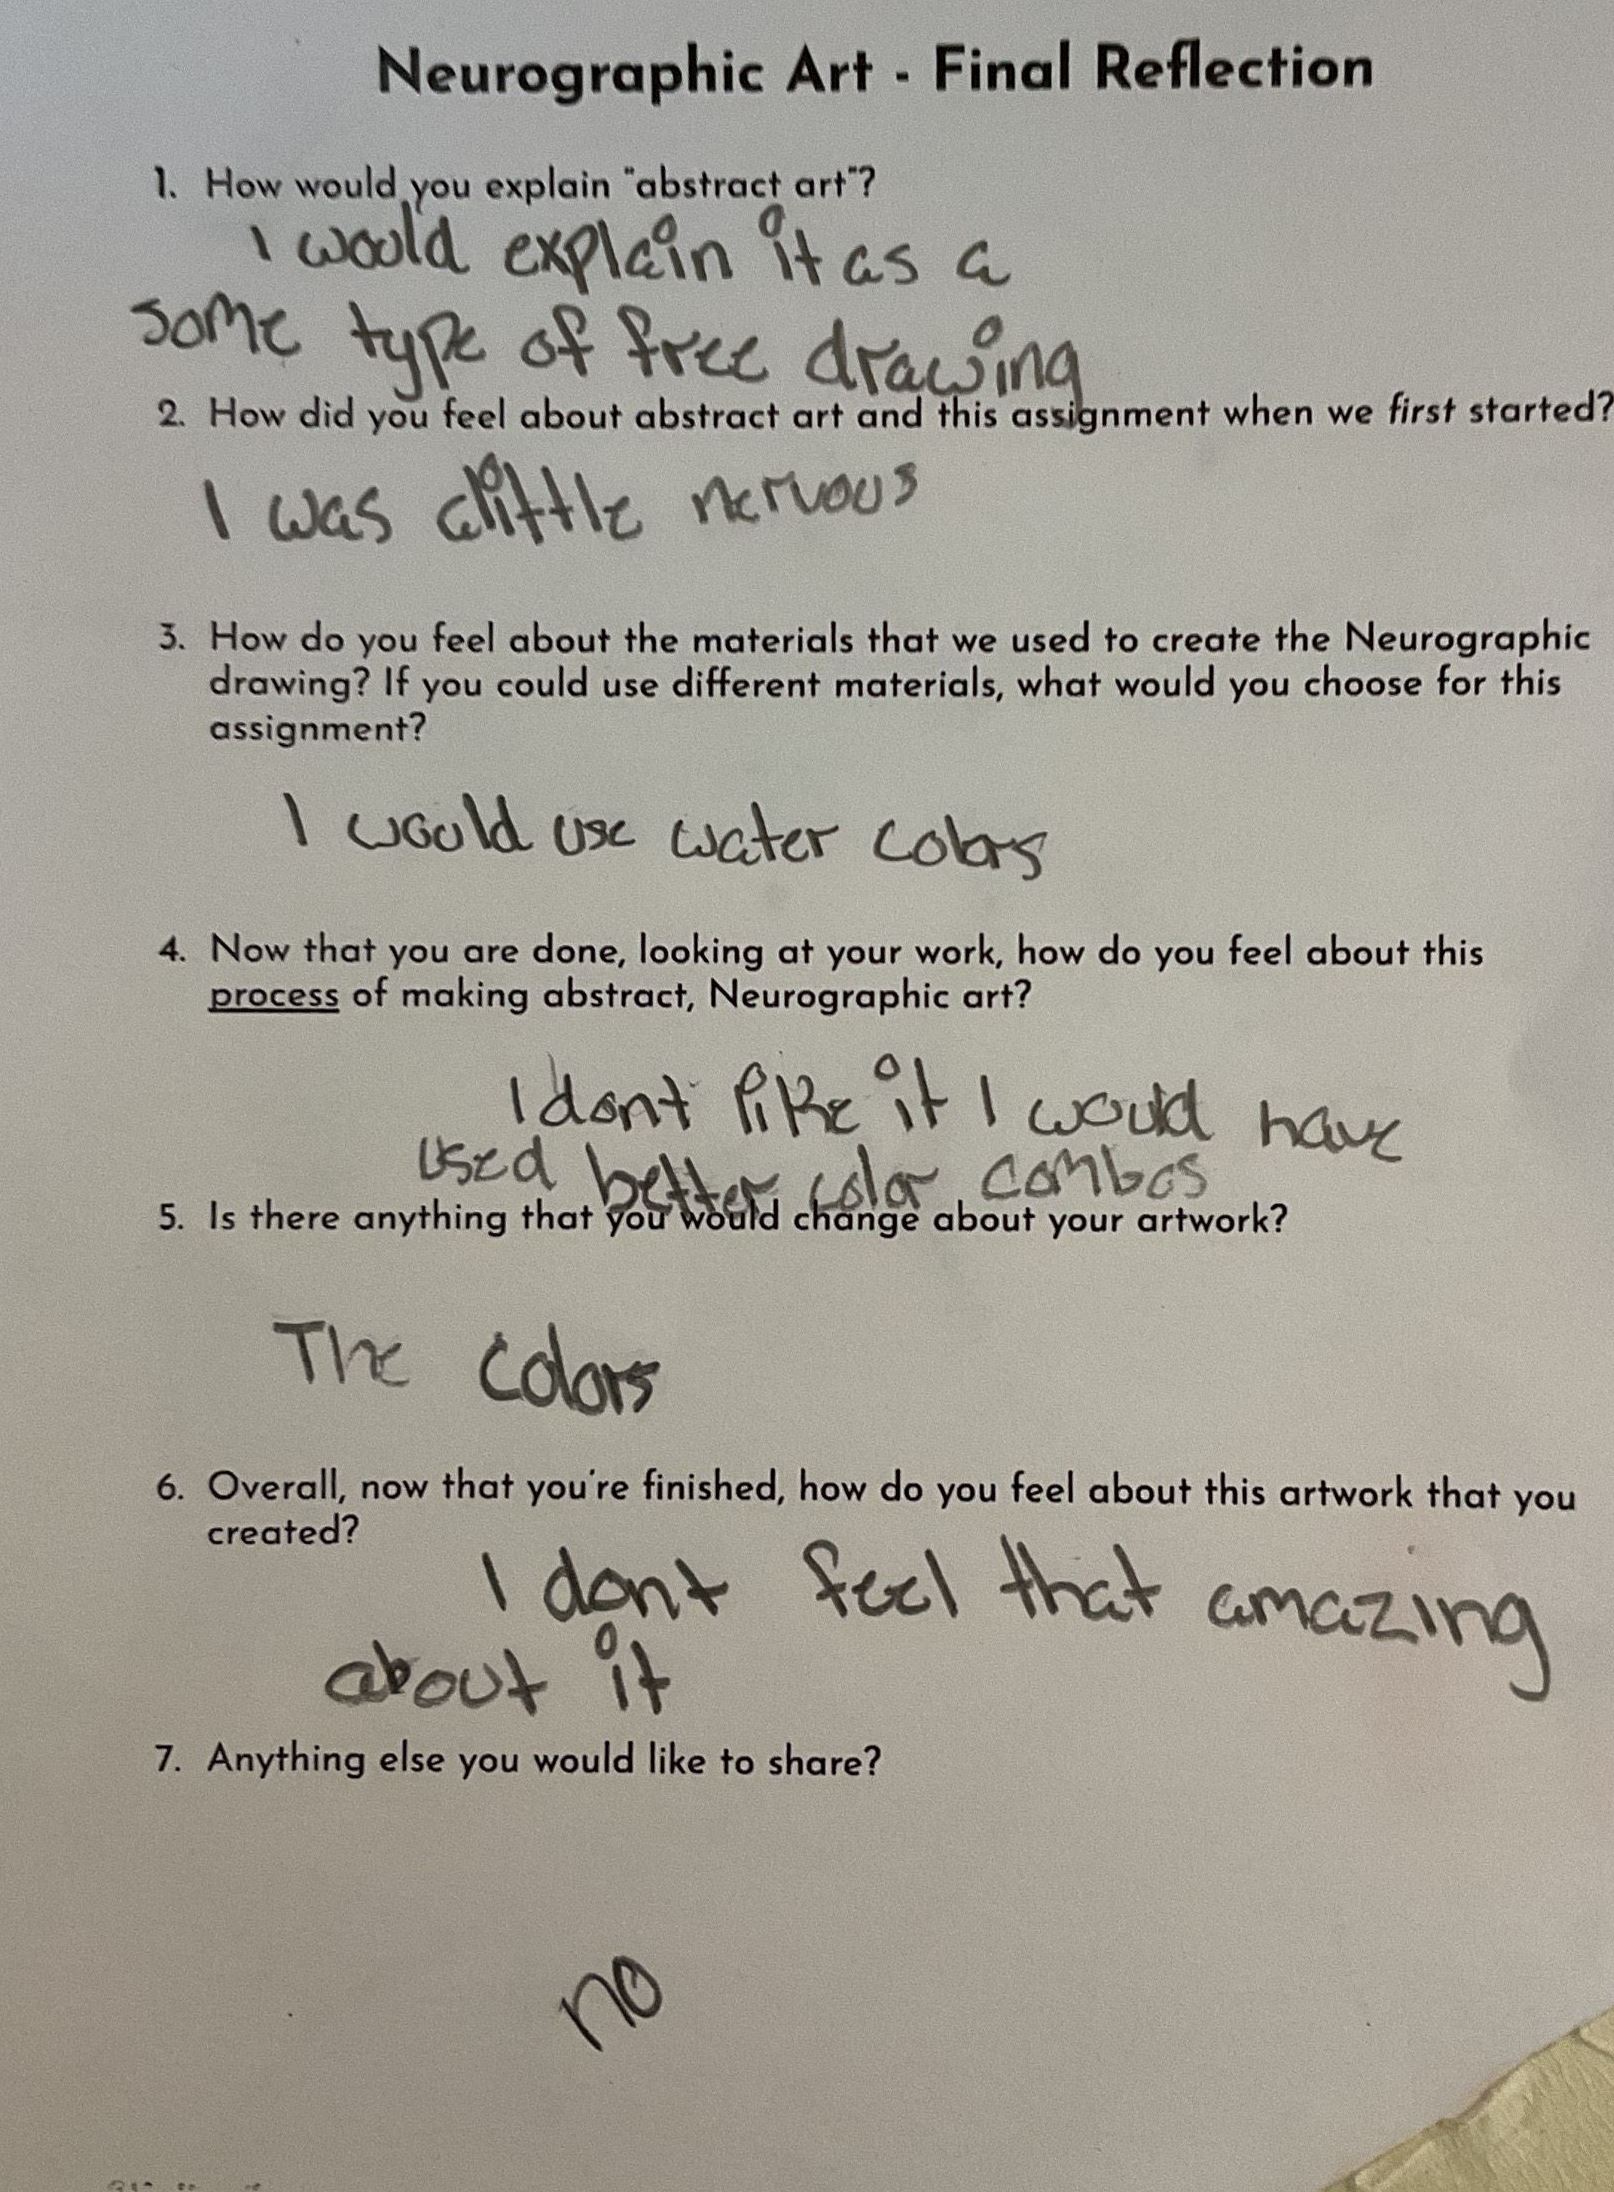 Neurographic Art - Final Reflection
1. How would you explain "abstract art"?
I would explain it as a
some type of free drawing
2. How did you feel about abstract art and this assignment when we first started?
I was alittle nervous
3. How do you feel about the materials that we used to create the Neurographic
drawing? If you could use different materials, what would you choose for this
assignment?
I would use water colors
4. Now that you are done, looking at your work, how do you feel about this
process of making abstract, Neurographic art?
I dont like it I would have
used better color combos
5. Is there anything that you would change about your artwork?
The colors
6. Overall, now that you're finished, how do you feel about this artwork that you
created?
I dont feel that amazing
about it
7. Anything else you would like to share?
no